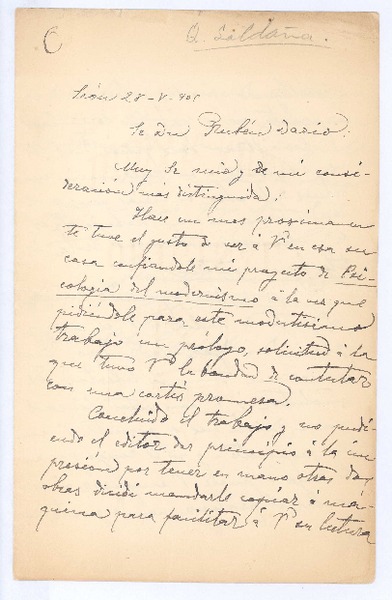 Q. Saldaña.
León 28-V-901
Sr Dn Rubén Darío:
Muy Sr mio y de mi consi-
deración más distinguida:
Hace un mes proximamen
te tuve el gusto de ver á V en esa su
casa confiandole mi proyecto de Psi-
cología del modernismo á la vez que
pidiéndole para este modestísimo
trabajo un prólogo, solicitud á la
que tuvo V la bondad de contestar
con una cortés promesa.
Concluido el trabajo y no pudi-
endo el editor dar principio á la im
presión por tener en mano otras dos
obras decidí mandarle copiar á má-
quina para facilitar á V su lectura